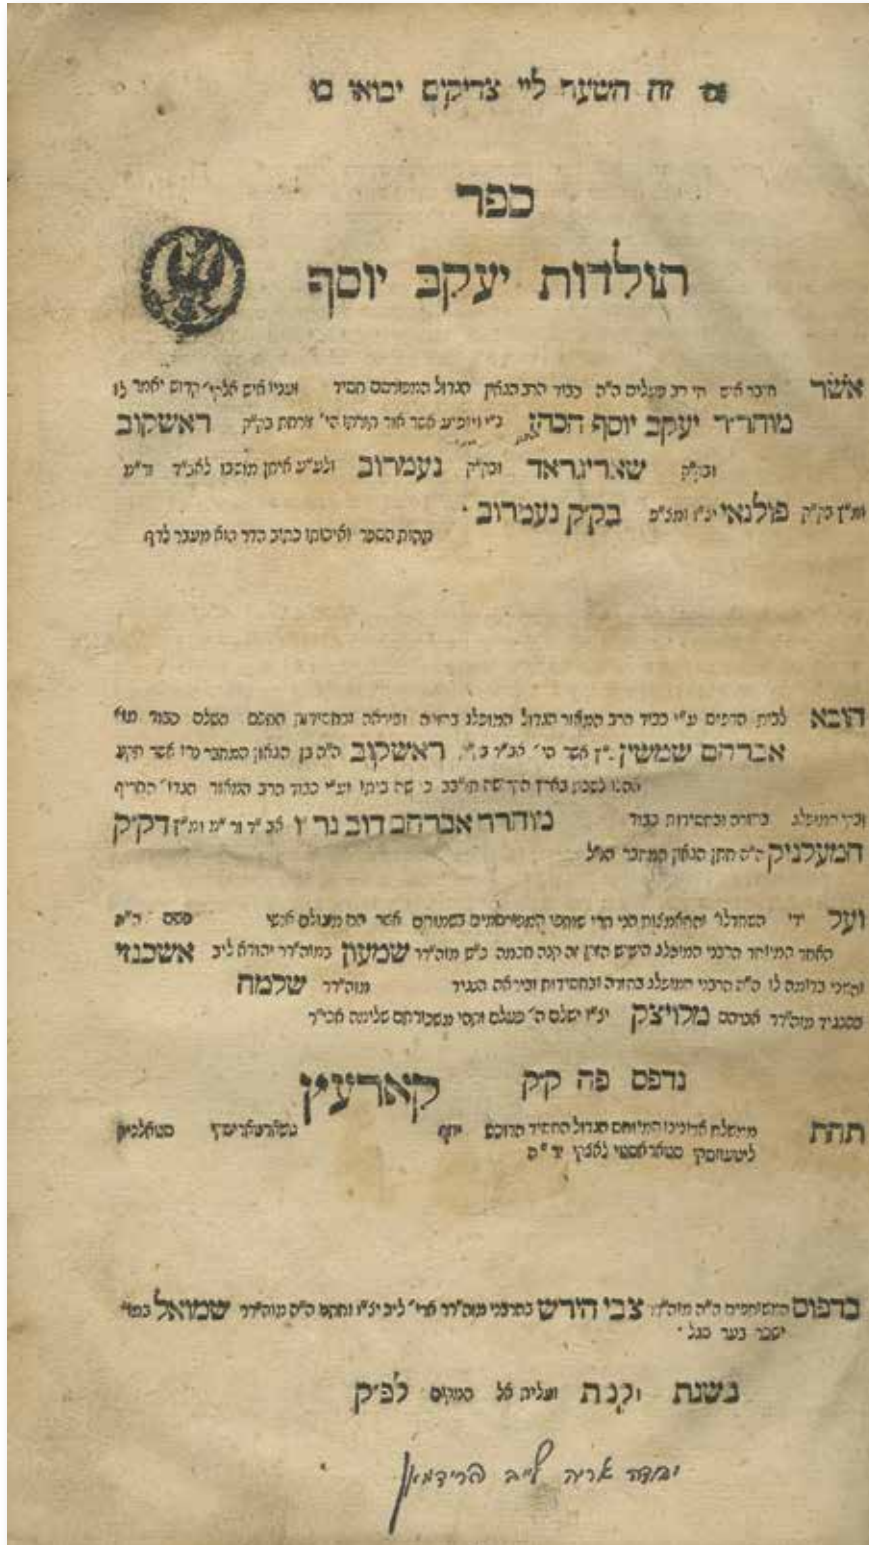 זה השער ליי צדיקים יבואו בו
ספר
תולדות יעקב יוסף
אשר חיבר איש חי רב פעלים ה"ה כבוד הרב הגאון הגדול המפורסם חסיד ועניו איש אלקי' קדוש יאמר לו
מוהר"ר יעקב יוסף הכהן אשר אור תורתו הי' זורחת בק"ק ראשקוב
ובק"ק שאריגראד ובק"ק נעמרוב ולע"ע איתן מושבו לאב"ד ור"מ
ומ"ץ בק"ק פולנאי יע"ו ומ"מ בק"ק נעמרוב
מהות הספר ואיכותו כתוב הדר הוא מעבר לדף
הובא לבית הדפוס ע"י כבוד הרב המאור הגדול המופלג בתורה וביראה ובחסידות החכם השלם כבוד
אברהם שמשין אשר הי' אב"ד בק"ק ראשקוב ה"ה בן הגאון המחבר
לשכון בארץ הקדושה וע"י כבוד הרב המאור הגדול החריף
ובקי המופלג בתורה ובחסידות כבוד מוהרר אברהם דוב נר"ו אב"ד ור"מ ומ"ץ דק"ק
חמעלניק ה"ה חתן הגאון המחבר הנ"ל
ועל ידי השתדלות והתאמצות הני תרי שותפי המפורסמים בשמותם אשר הם מעולם אנשי השם ה"ה
האחד המיוחד הרבני המופלג הישיש הזקן זה קנה חכמה כ"ש מוה"רר שמעון במוה"רר יהודא ליב אשכנזי
והשני בדומה לו ה"ה הרבני המופלג בתורה ובחסידות וביראת הנגיד מוה"רר שלמה
במנגיד מוה"רר אברהם מלויצק יע"ו ישלם ה' פעלם ותהי משכורתם שלימה אכי"ר
נדפס פה ק"ק קארעץ
תחת ממשלת אדונינו המיוחס הגדול החסיד הדוכס יוזף טשארטארישקי סטאלניק
ליטעווסקי סטאראסטי לאצקי יר"ה
בדפוס השותפים ה"ה מוה"רר צבי הירש בהרבני מוה"רר ארי' ליב יע"ו והקם ה"ה מוה"רר שמואל במו'
ישכר בער סגל
בשנת וקמת ועלית אל המקום לפ"ק
יהודה אריה לייב פרידמאן